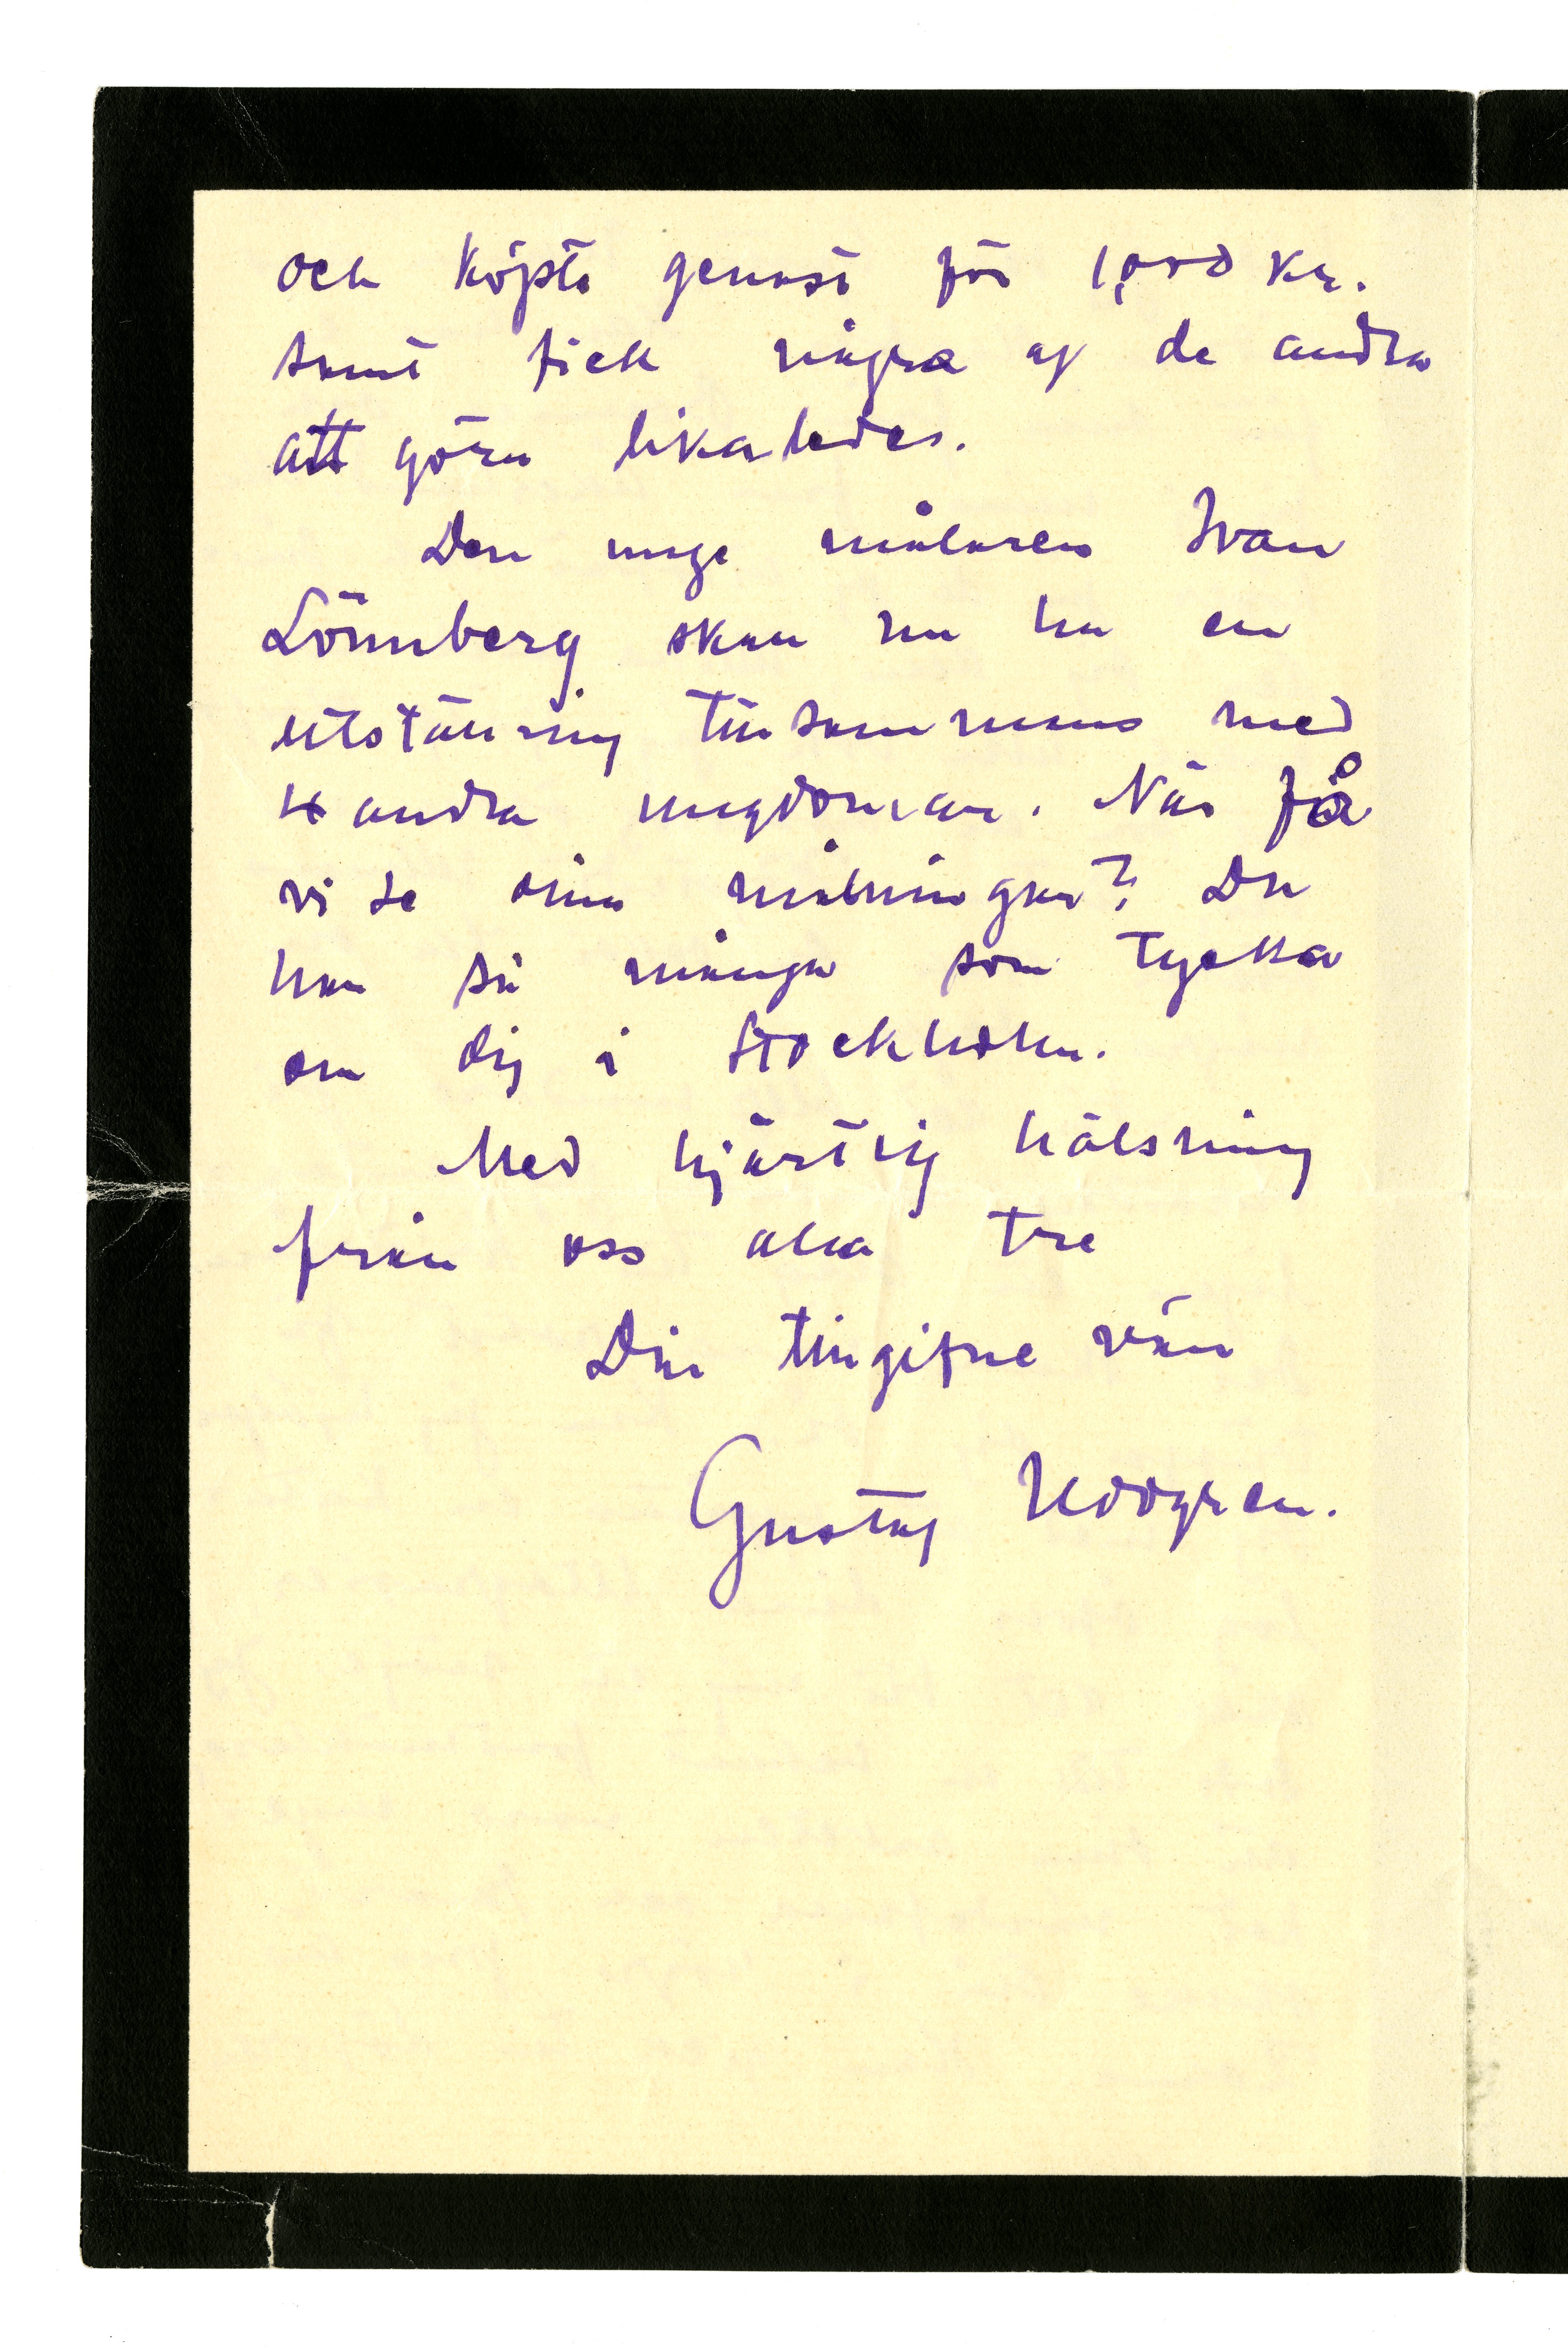 och köpte genast för 1,000 kr.
samt fick några af de andra
att göra likaledes.
Den unge målaren Ivan
Lönnberg skall nu ha en
utställning tillsammans med
andra ungdomar. När få
vi se dina målningar? Du
har så många som tycka
om dig i Stockholm.
Med hjärtlig hälsning
från oss alla tre
Din tillgifne vän
Gustaf Uddgren.